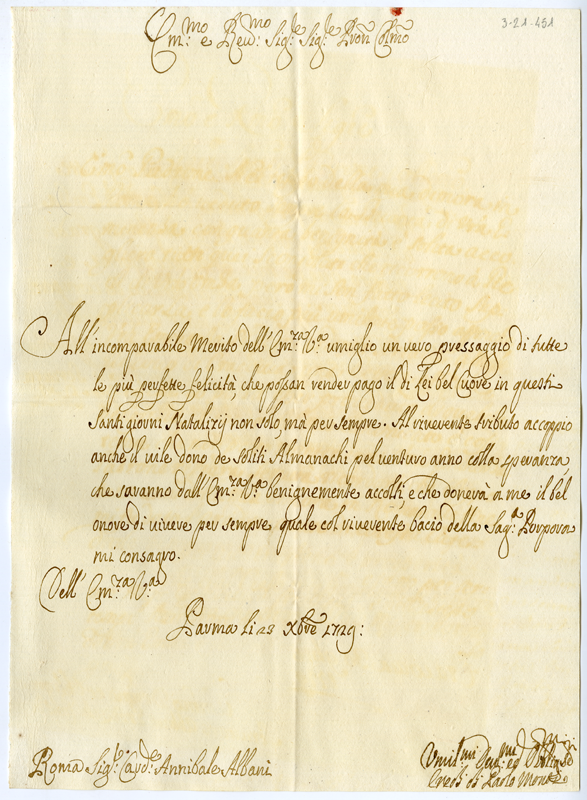 3-21-451
Em:mo e Rev:mo Sig:re Sig:re Pron Colmo
All' incomparabile Merito dell' Em:za V:a umiglio un vero pressaggio di tutte
le più perfette felicità, che possan render pago il di Lei bel Cuore in questi
Santi giorni Natalizij non solo, mà per sempre. Al riverente tributo accoppio
anche il vile dono de soliti Almanachi pel venturo anno colla speranza
che saranno dall' Em:za V:a benignemente accolti, e che donerà à me il bel
onore di vivere per sempre quale col riverente bacio della Sag:a Porpora
mi consagro.
Dell' Em:za V:a
Parma li 23 Xbre 1729:
Roma Sig:r Card: Annibale Albani
Umil:mi
Eredi di Paolo Monti